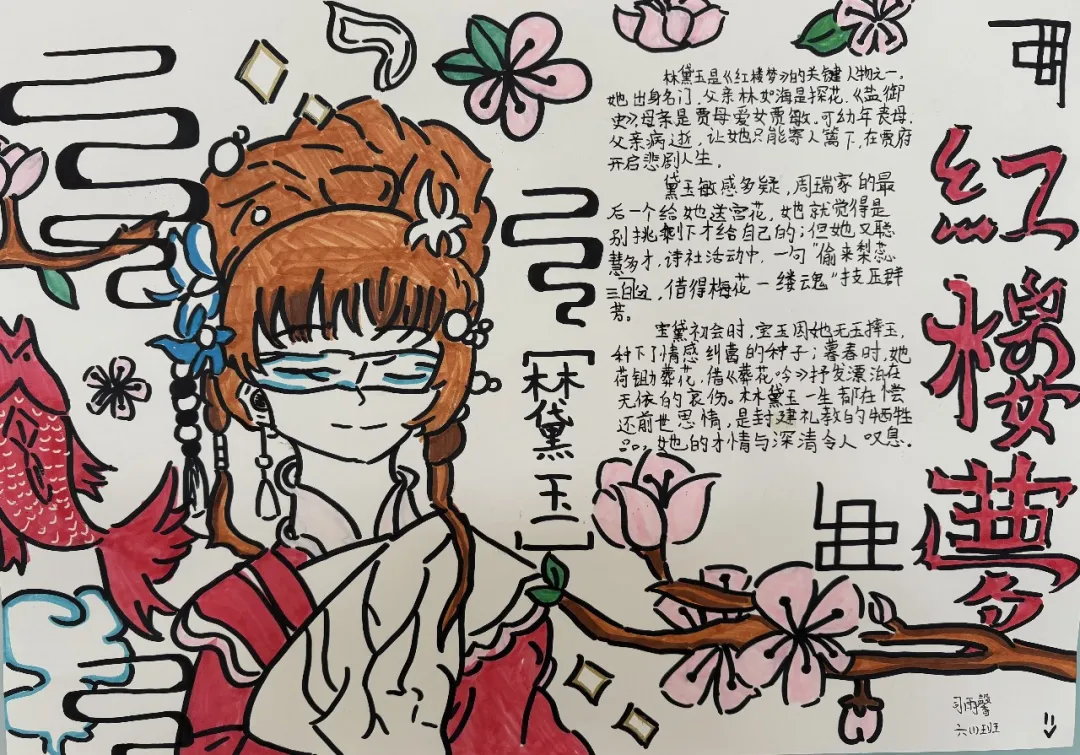 红楼梦
林黛玉是《红楼梦》的关键人物之一。
她出身名门,父亲林如海是探花.《盐御
史》母亲是贾母爱女贾敏.可幼年丧母.
父亲病逝,让她只能寄人篱下,在贾府
开启悲剧人生。
黛玉敏感多疑,周瑞家的最
后一个给她送宫花,她就觉得是
别挑剩下才给自己的;但她又聪
慧多才,诗社活动中,一句“偷来梨蕊
三白,借得梅花一缕魂”技压群
芳。
宝黛初会时,宝玉因她无玉摔玉,
种下了情感纠葛的种子;暮春时,她
荷锄葬花,借《葬花吟》抒发漂泊在
无依的哀伤。林黛玉一生都在偿
还前世恩情,是封建礼教的牺牲
品,她的才情与深清令人叹息。
[林黛玉]
司雨馨
六(1)班